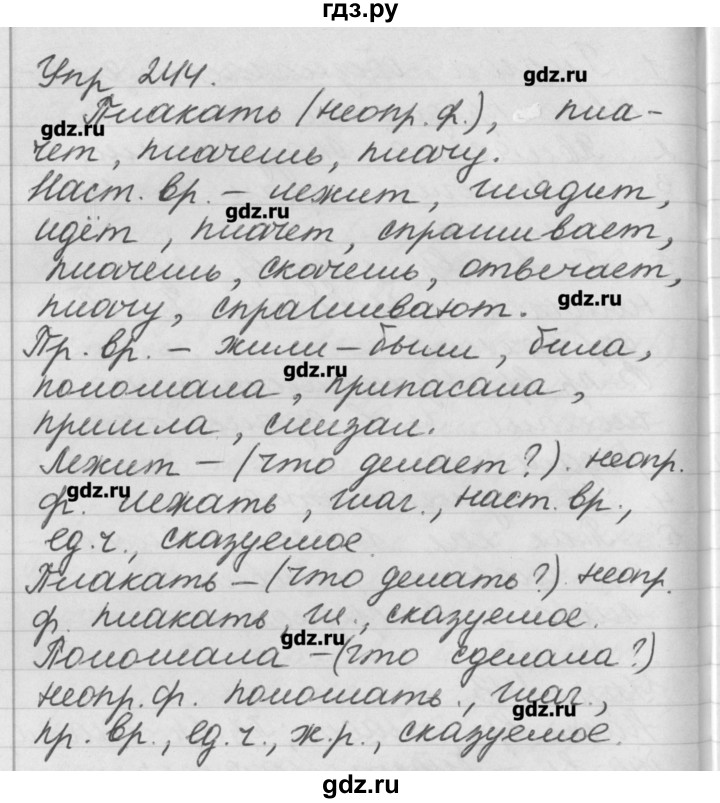 гдз.ру
Упр 244.
gdz.ru
Плакать (неопр. ф.), пла-
gdz.ru
чет, плачешь, плачу.
Наст. вр. – лежит, глядит,
gdz.ru
идёт, плачет, спрашивает,
плачешь, скачешь, отвечает,
плачу, спрашивают.
gdz.ru
Пр. вр. – жили-были, била,
gdz.ru
поломала, припасала,
пришла, слизал.
Лежит – (что делает?). неопр.
gdz.ru
ф. лежать, глаг., наст. вр.,
ед. ч., сказуемое
Плакать – (что делать?). неопр.
ф. плакать, гл., сказуемое.
gdz.ru
Поломала – (что сделала?)
неопр. ф. поломать., глаг.,
gdz.ru
пр. вр., ед. ч., ж.р., сказуемое.
gdz.ru